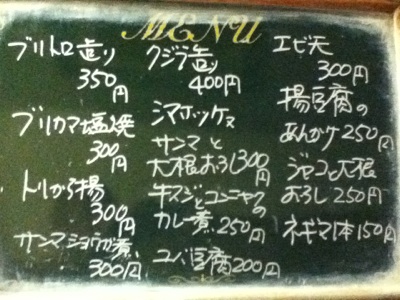 MENU
ブリトロ造り
350円
ブリカマ塩焼
300円
トリから揚
300円
サンマショウガ煮
300円
クジラ造り
400円
シマホッケ
サンマと
大根おろし300円
牛スジとコンニャクの
カレー煮250円
ユバ豆腐200円
エビ天
300円
揚豆腐の
あんかけ250円
ジャコと大根
おろし250円
ネギマ1本150円